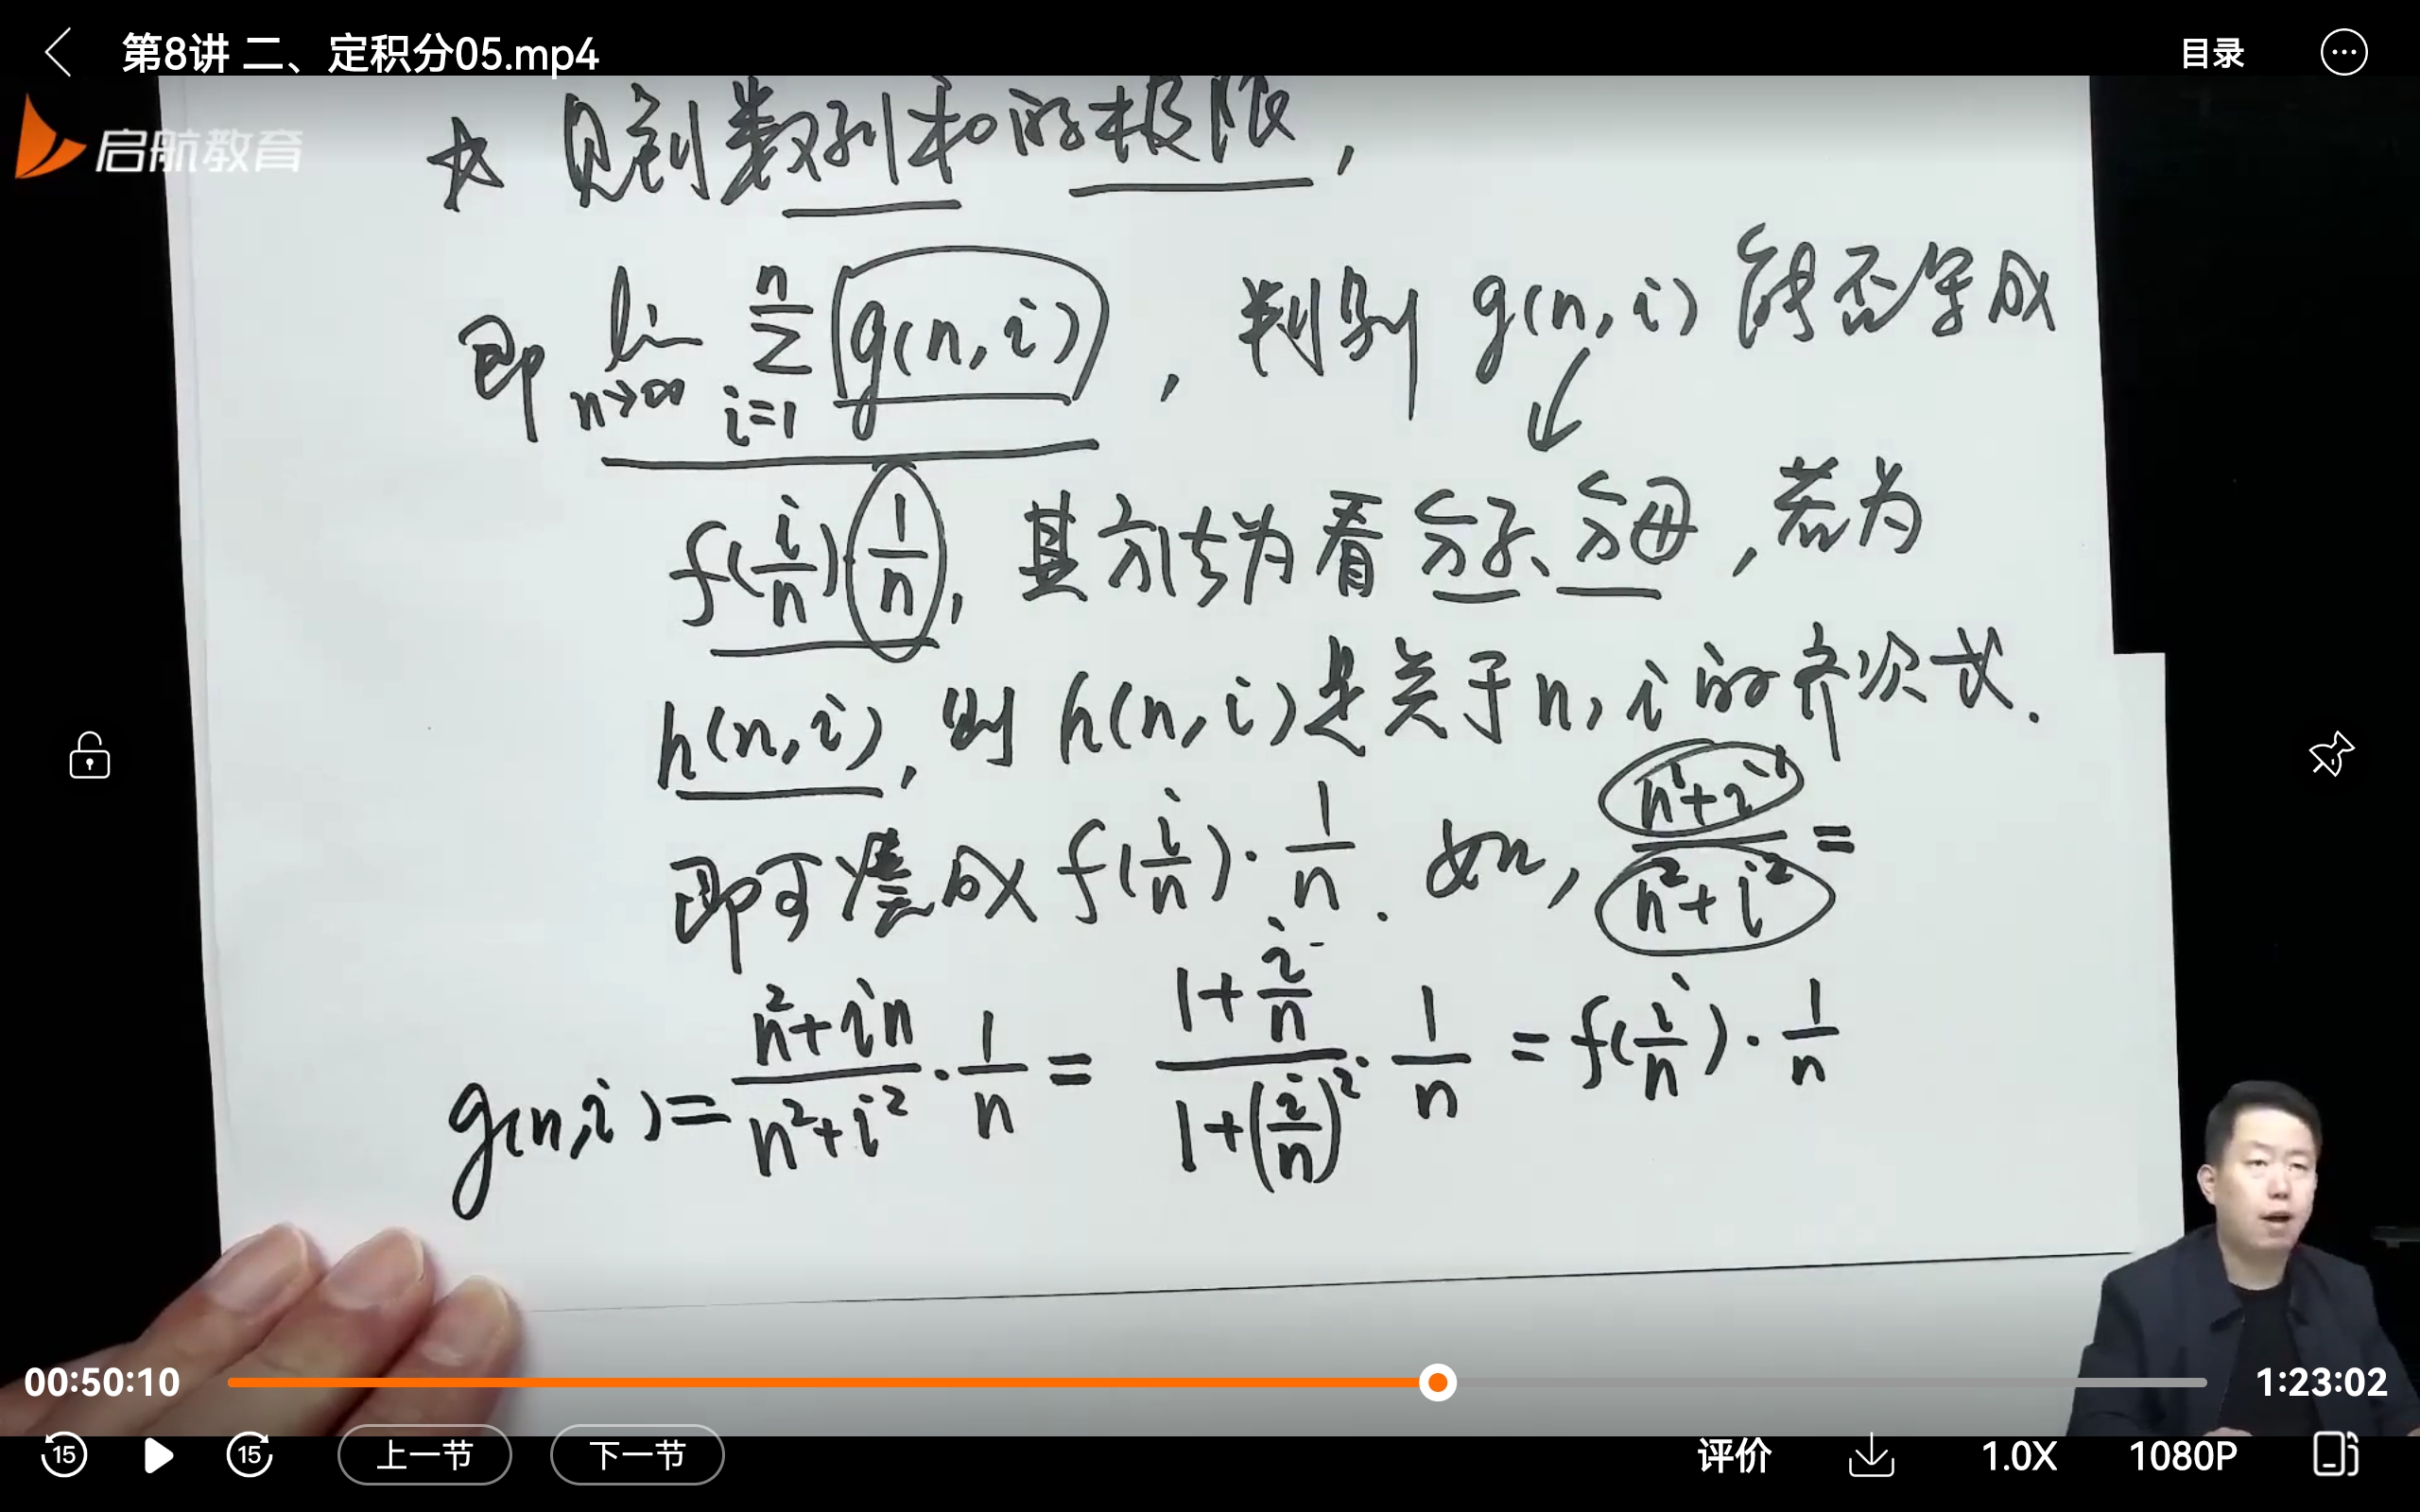 第8讲 二、定积分05.mp4
目录
启航教育
☆ 见到数列和的极限,
即 lim n→∞ Σ i=1 n g(n,i) , 判别 g(n,i) 能否写成
f(i/n)·1/n, 其方法为看分子、分母, 若为
h(n,i), 则 h(n,i)是关于n,i的齐次式.
即可凑成 f(i/n)·1/n. 如, (n+i)/(n²+i²) =
g(n,i)= (n²+in)/(n²+i²) · 1/n = (1+i/n)/(1+(i/n)²) · 1/n = f(i/n)·1/n
00:50:10
1:23:02
15
15
上一节
下一节
评价
1.0X
1080P